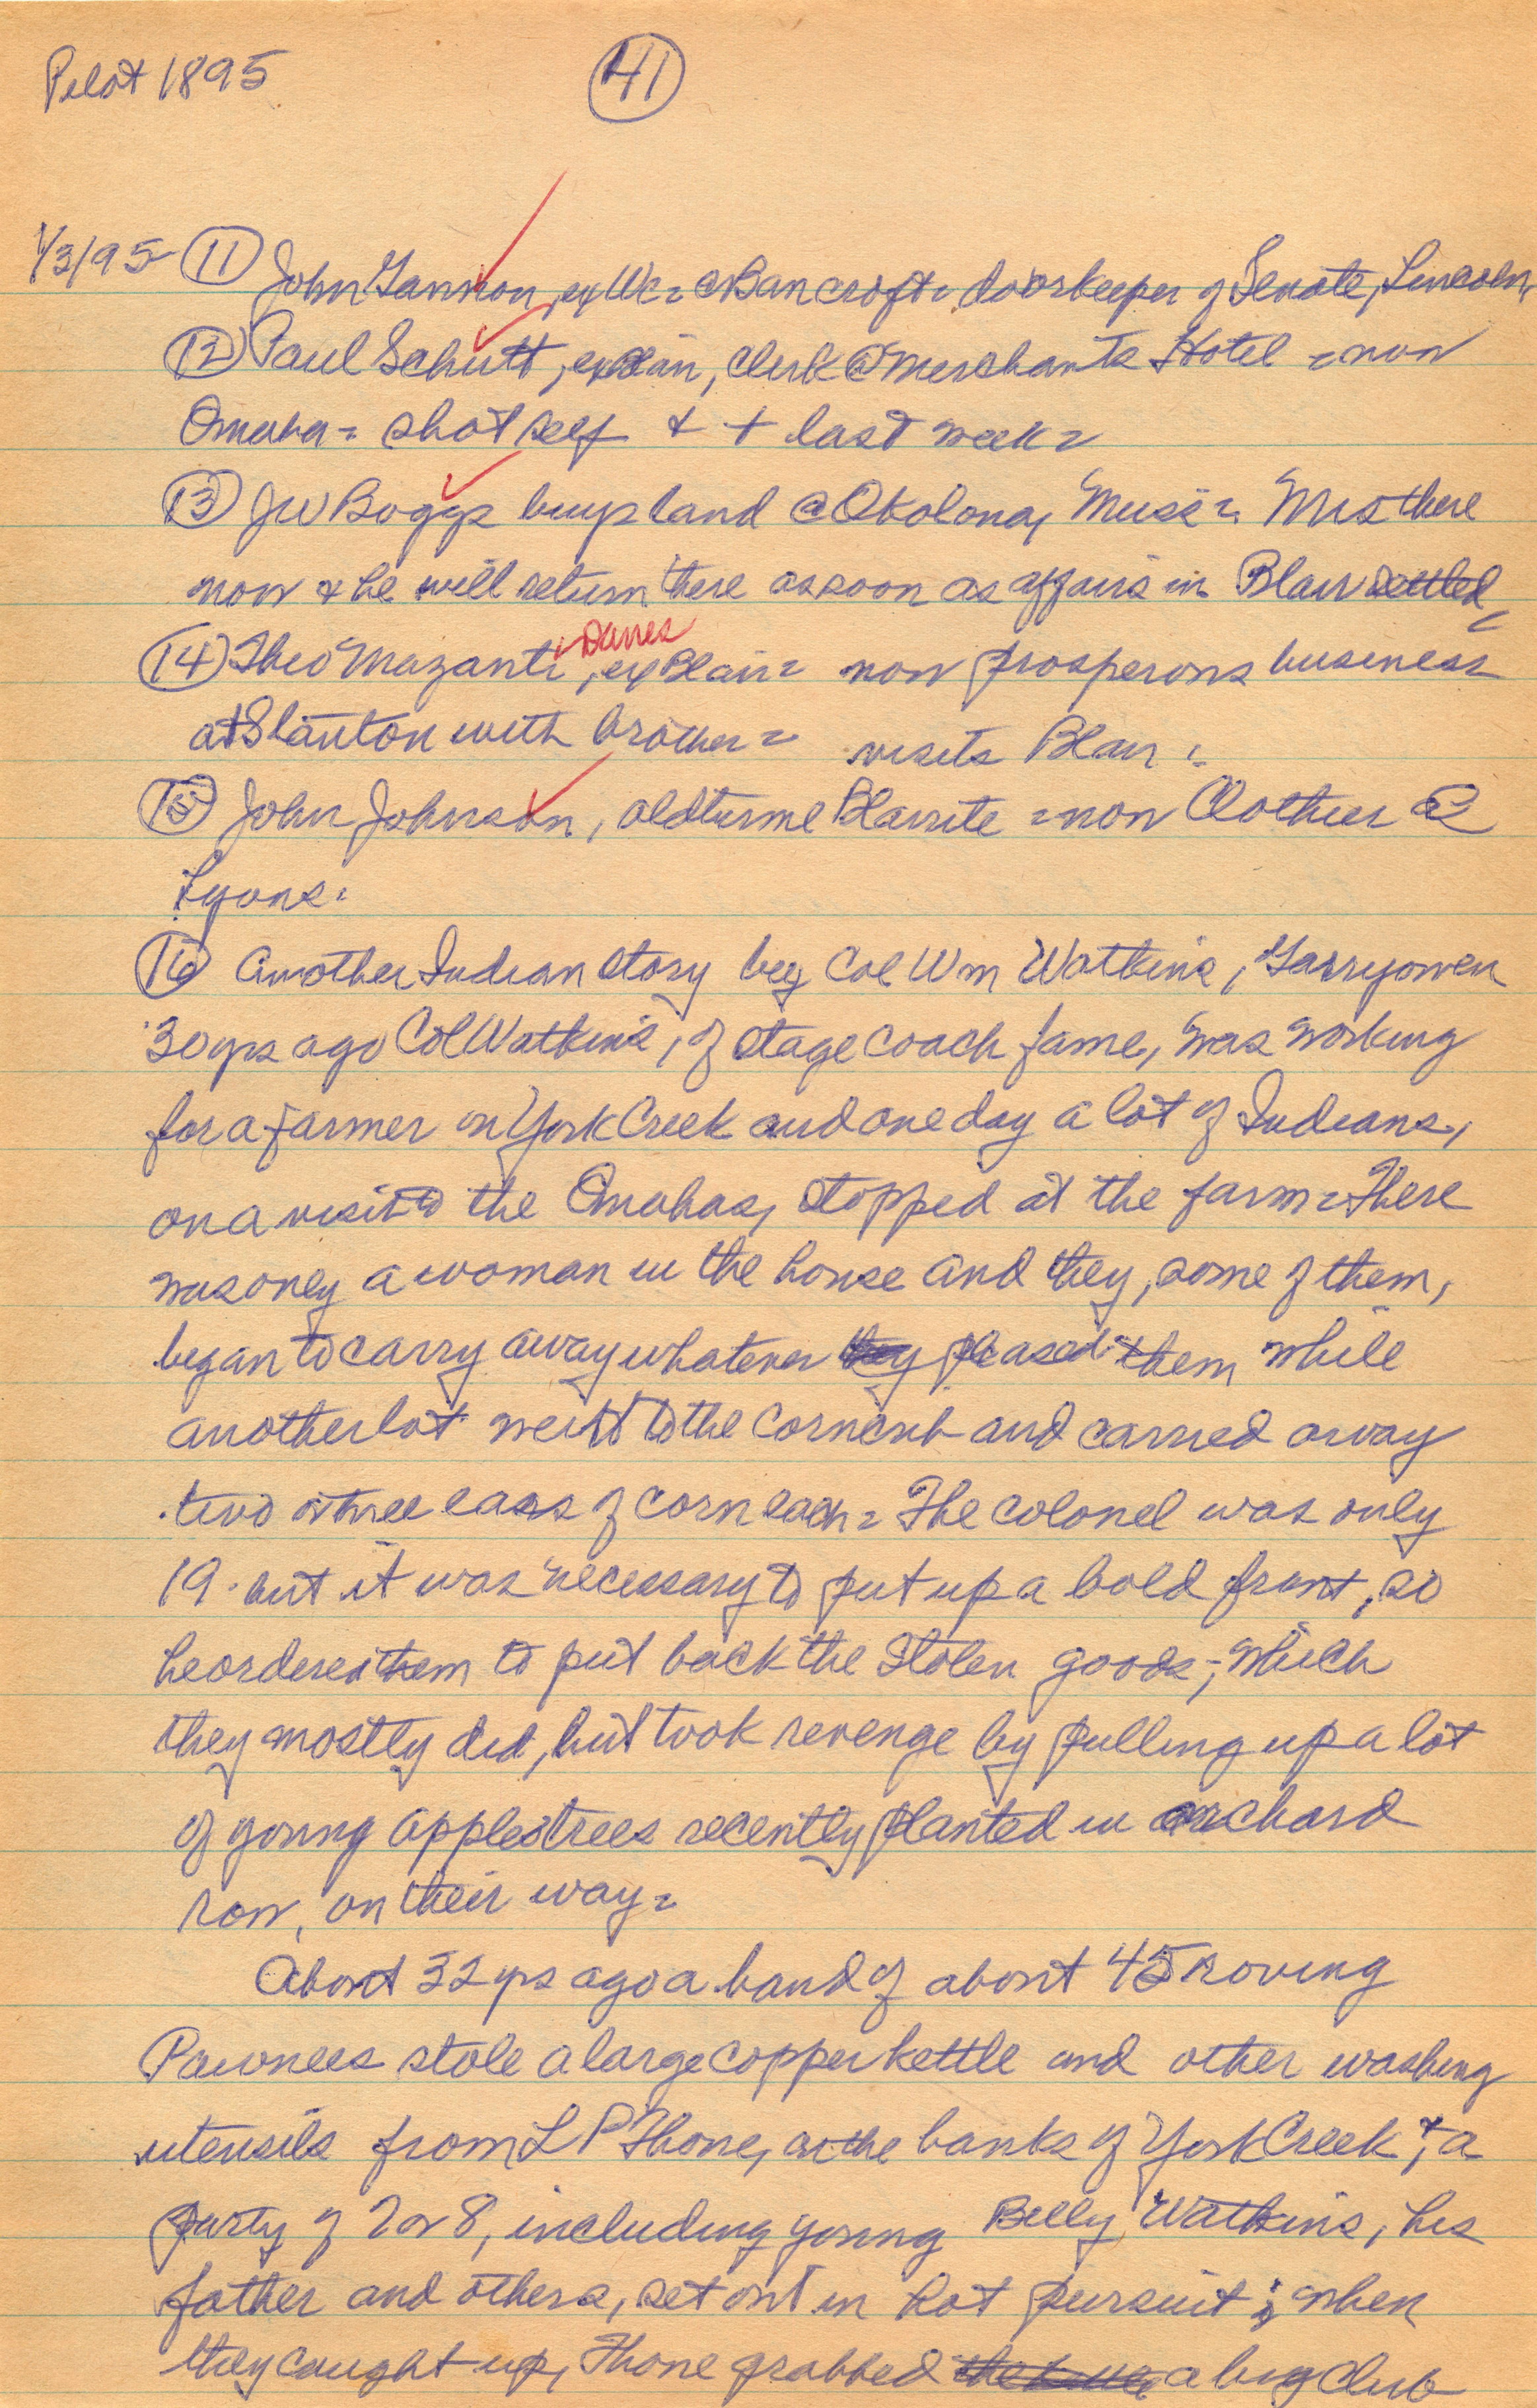 Pilot 1895
41
1/3/95 11 John Gannon, ex WC = @ Bancroft = doorkeeper of Senate, Lincoln,
12 Paul Schutt, ex Blair, Clerk @ Merchants Hotel = now
Omaha = shot self & + last week =
13 JW Boggs buys land @ Okolona, Miss =. Mrs there
now & he will return there as soon as affairs in Blair settled
Danes
14 Theo Mazanti, ex Blair = now prosperous business
at Stanton with brother = visits Blair =
15 John Johnson, oldtime Blairite = now Clothier @
Lyons =
16 Another Indian story by Col Wm Watkins, Garryowen
30 yrs ago Col Watkins, of stage coach fame, was working
for a farmer on York Creek and one day a lot of Indians,
on a visit to the Omahas, stopped at the farm = There
was only a woman in the house and they, some of them,
began to carry away whatever they pleased them while
another lot went to the corncrib and carried away
two or three ears of corn each = The colonel was only
19 but it was necessary to put up a bold front, so
he ordered them to put back the stolen goods -, which
they mostly did, but took revenge by pulling up a lot
of young apple trees recently planted in orchard
row, on their way =
About 32 yrs ago a band of about 45 roving
Pawnees stole a large copper kettle and other washing
utensils from L P Thone, on the banks of York Creek &, a
party of 7 or 8, including young Billy Watkins, his
father and others, set out in hot pursuit; when
they caught up, Thone grabbed a big club